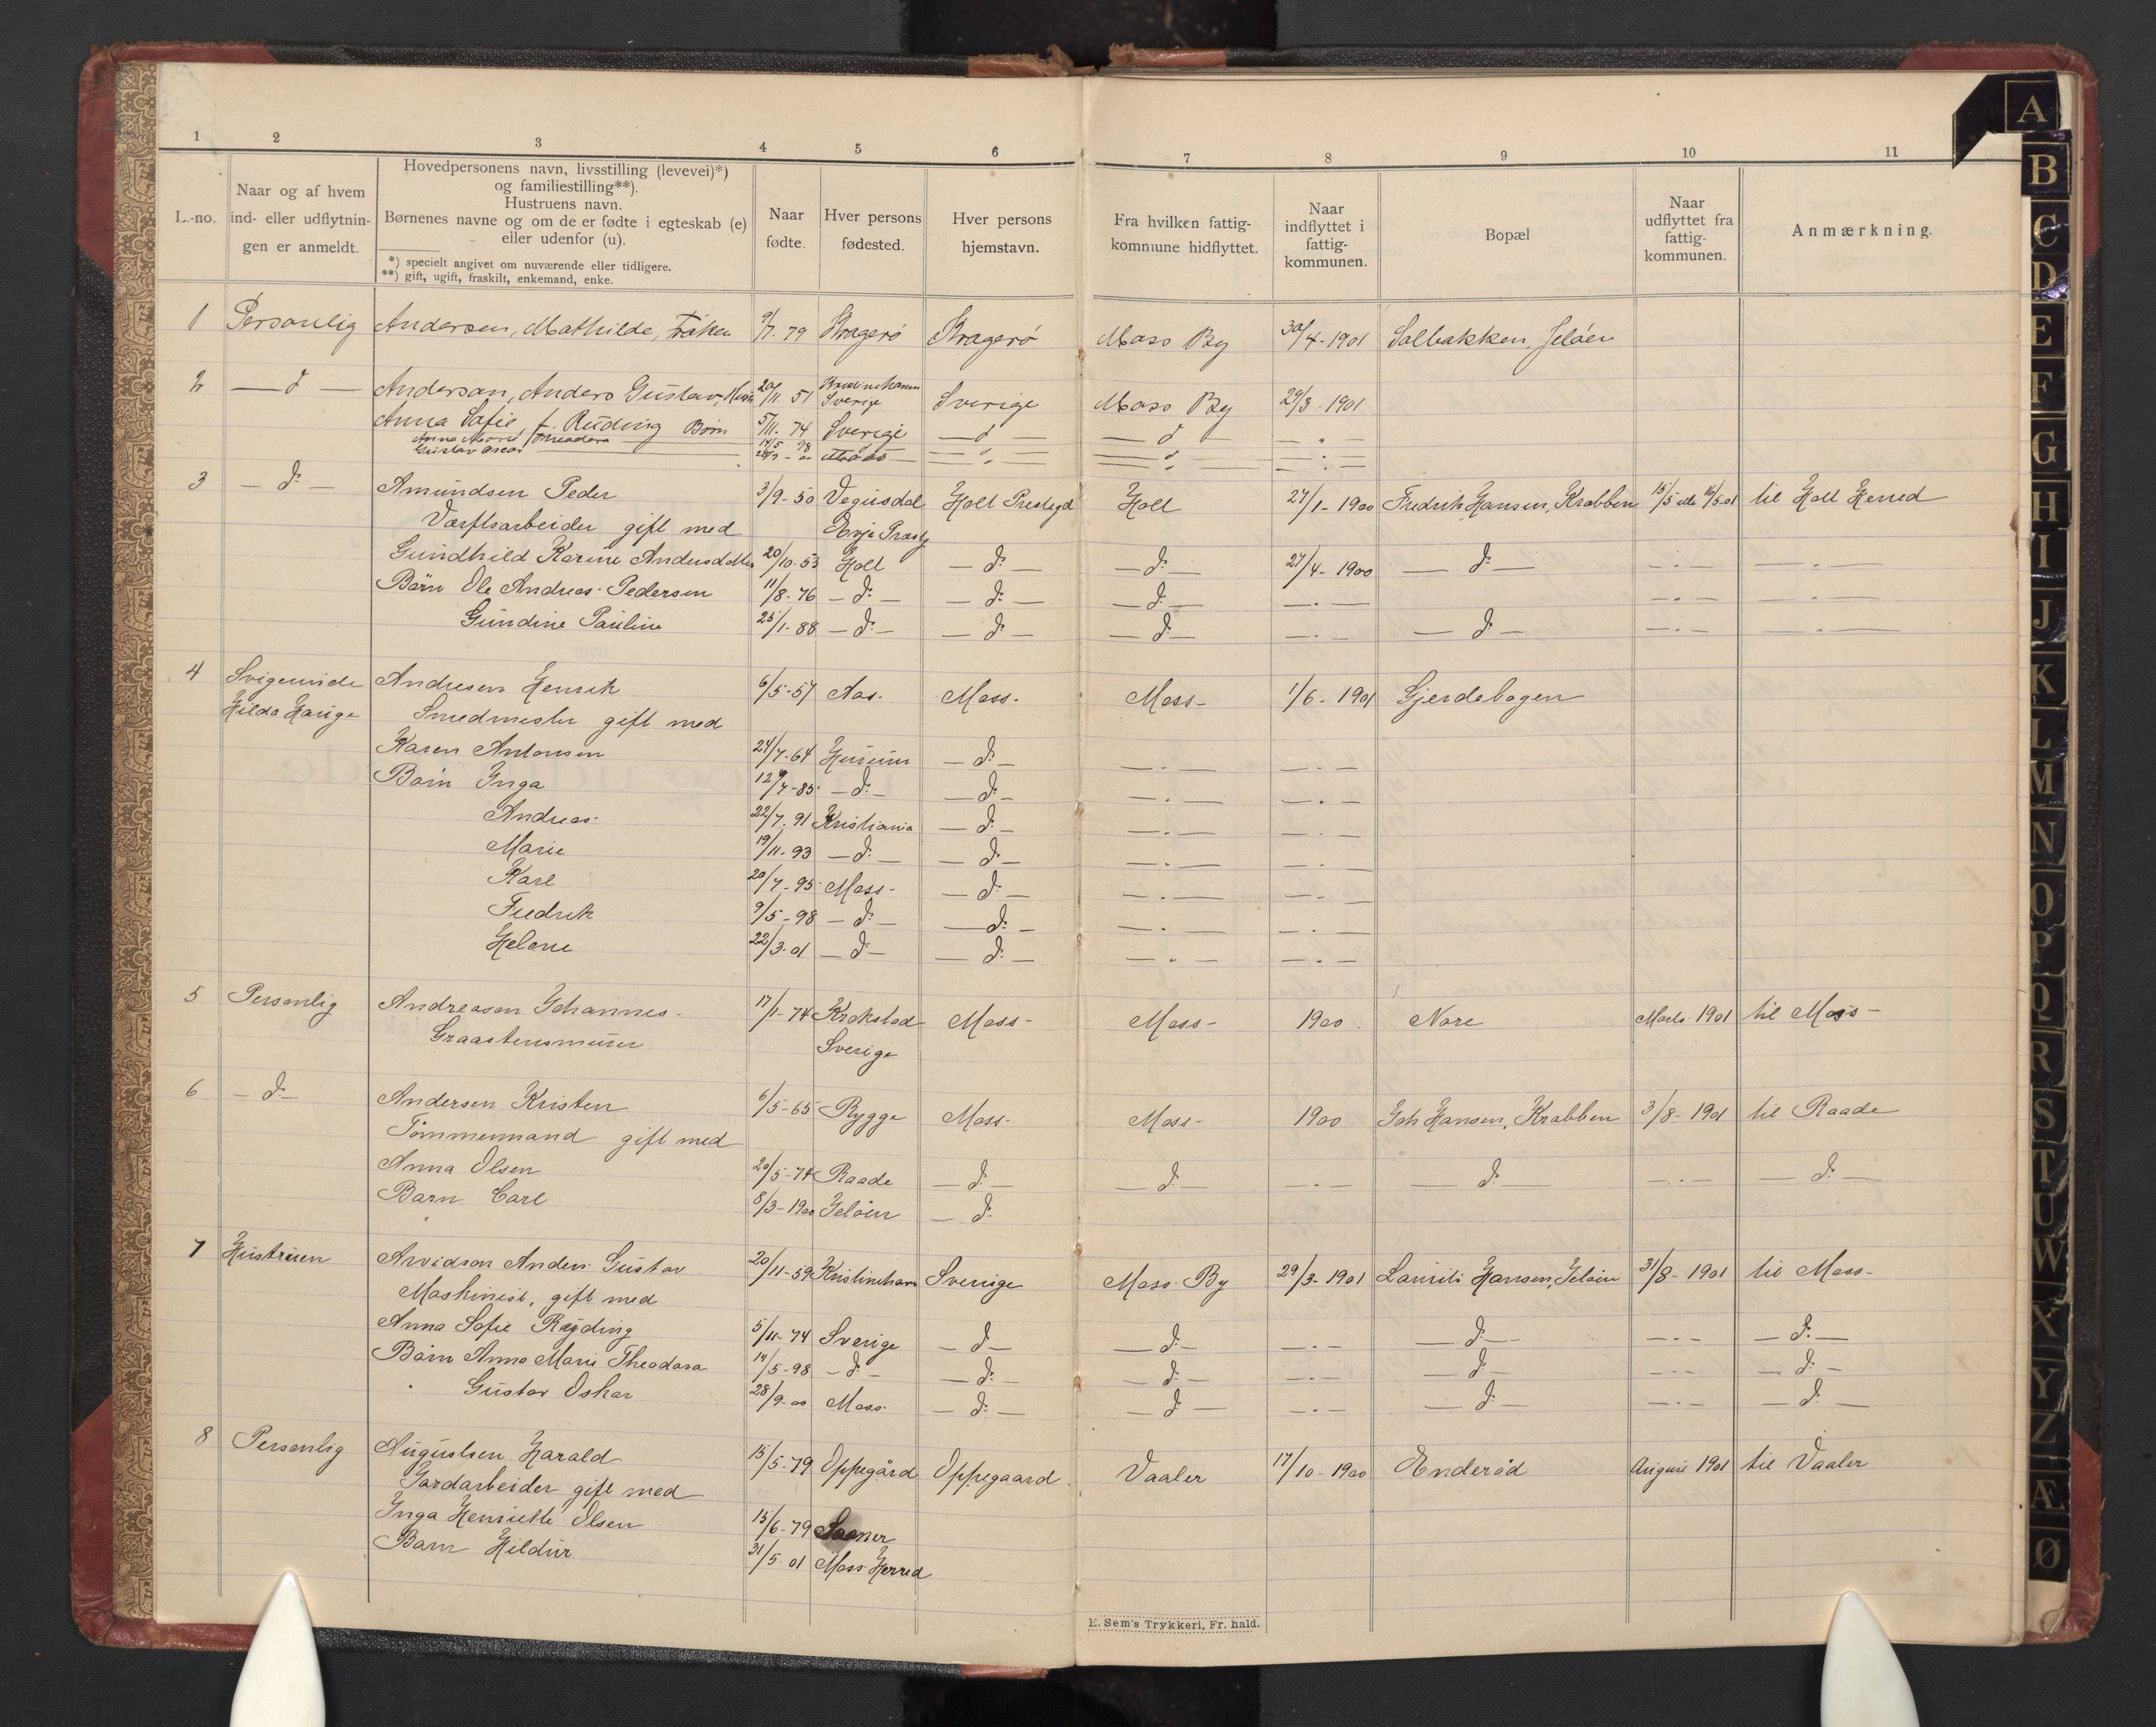 1 2 3 4 5 6 7 8 9 10 11
L.-no. | Naar og af hvem ind- eller udflytnin- gen er anmeldt. | Hovedpersonens navn, livsstilling (levevei)*) og familiestilling**). Hustruens navn. Børnenes navne og om de er fødte i egteskab (e) eller udenfor (u). *) specielt angivet om nuværende eller tidligere. **) gift, ugift, fraskilt, enkemand, enke. | Naar fødte. | Hver persons fødested. | Hver persons hjemstavn. | Fra hvilken fattig- kommune hidflyttet. | Naar indflyttet i fattig- kommunen. | Bopæl | Naar udflyttet fra fattig- kommunen. | Anmærkning.
1 Personlig Andersen, Mathilde, Frøken 9/7. 79 Kragerø Kragerø Moss By 30/4-1901 Solbakken, Jeløen
2 — d — Anderson, Anders Gustav, 20/11 51 Kristinehamn Sverige Sverige Moss By 29/3 1901
Anna Sofie, f. Rüding Børn 5/11-74 Sverige — d — — d — — " —
Anna Marie Theodora 14/5 98 — d — — d —
Gustav Oscar 28/9 - 00 Moss — " — — " — — " —
3 — d: — Amundsen Peder 3/9-50 Vegusdal Holt Prestegd Holt 27/1-1900 Fredrik Hansen, Krabben 15/5 eller 16/5 01 til Holt Herred
Værftsarbeider gift med Evje Præstg
Gundhild Karine Andersdatter 20/10-53 Holt — d: — — d: — 27/4-1900 — d: — — " — — " —
Børn Ole Andreas Pedersen 11/8-76 — d: — — d: — — d: — — " — — " — — " —
Gundine Pauline 25/1-88 — d: — — d: — — d: — — " — — d: — — " — — " —
4 Svigerinde Andresen Henrik 6/5-57 Aas. Moss- Moss- 1/6-1901 Gjerdebogen
Hilda Hauge Smedmester gift med
Karen Antonsen 24/7-64 Hurum — d: — — " — — " —
Børn Inga 12/7-85 — d: — — d: — — " — — " —
Andreas 22/7. 91 Kristiania — d: — — " — — " —
Marie 19/11-93 — d: — — d: — — " — — " —
Karl 20/7-95 Moss- — d: — — " — — " —
Fredrik 9/5-98 — d: — — d: — — " — — " —
Helene 22/3-01 — d: — — d: — — " — — " —
5 Personlig Andreasen Johannes- 17/1-74 Krokstad Moss- Moss- 1900 Nore Marts 1901 til Moss-
Graastensmurer Sverige
6 — d: — Andersen Kristen 6/5-65 Rygge Moss- Moss- 1900 Joh Hansen, Krabben 3/8-1901 til Raade
Tømmermand gift med
Anna Olsen 20/5-74 Raade — d: — — d: — — " — — d: — — " — — d: —
Barn Carl 8/3-1900 Jeløen — d:
7 Hustruen Arvidson Anders Gustav 20/11-59 Kristinehamn Sverige Moss By 29/3-1901 Laurits Hansen, Jeløen 31/8-1901 til Moss-
Maskinist, gift med
Anna Sofie Ryding 5/11-74 Sverige — d — — d: — — " — — d: — — " — — d: —
Børn Anna Marie Theodora 14/5-98 — d: — — d: — — d: — — " — — d: — — " — — d: —
Gustav Oskar 28/9-00 Moss- — d: — — d: — — " — — d: — — " — — d: —
8 Personlig Augustsen Harald 15/5-79 Oppegård Oppegaard Vaaler 17/10-1900 Enderød August 1901 til Vaaler
Gardarbeider gift med
Inga Henriette Olsen 15/6-79 Saaner
Barn Hildur 31/5-01 Moss Herred
E. Sem's Trykkeri, Fr. hald.
A
B
C
D
E
F
G
H
I
J
K
L
M
N
O
P
Q
R
S
T
U
W
X
Y
Z
Æ
Ø